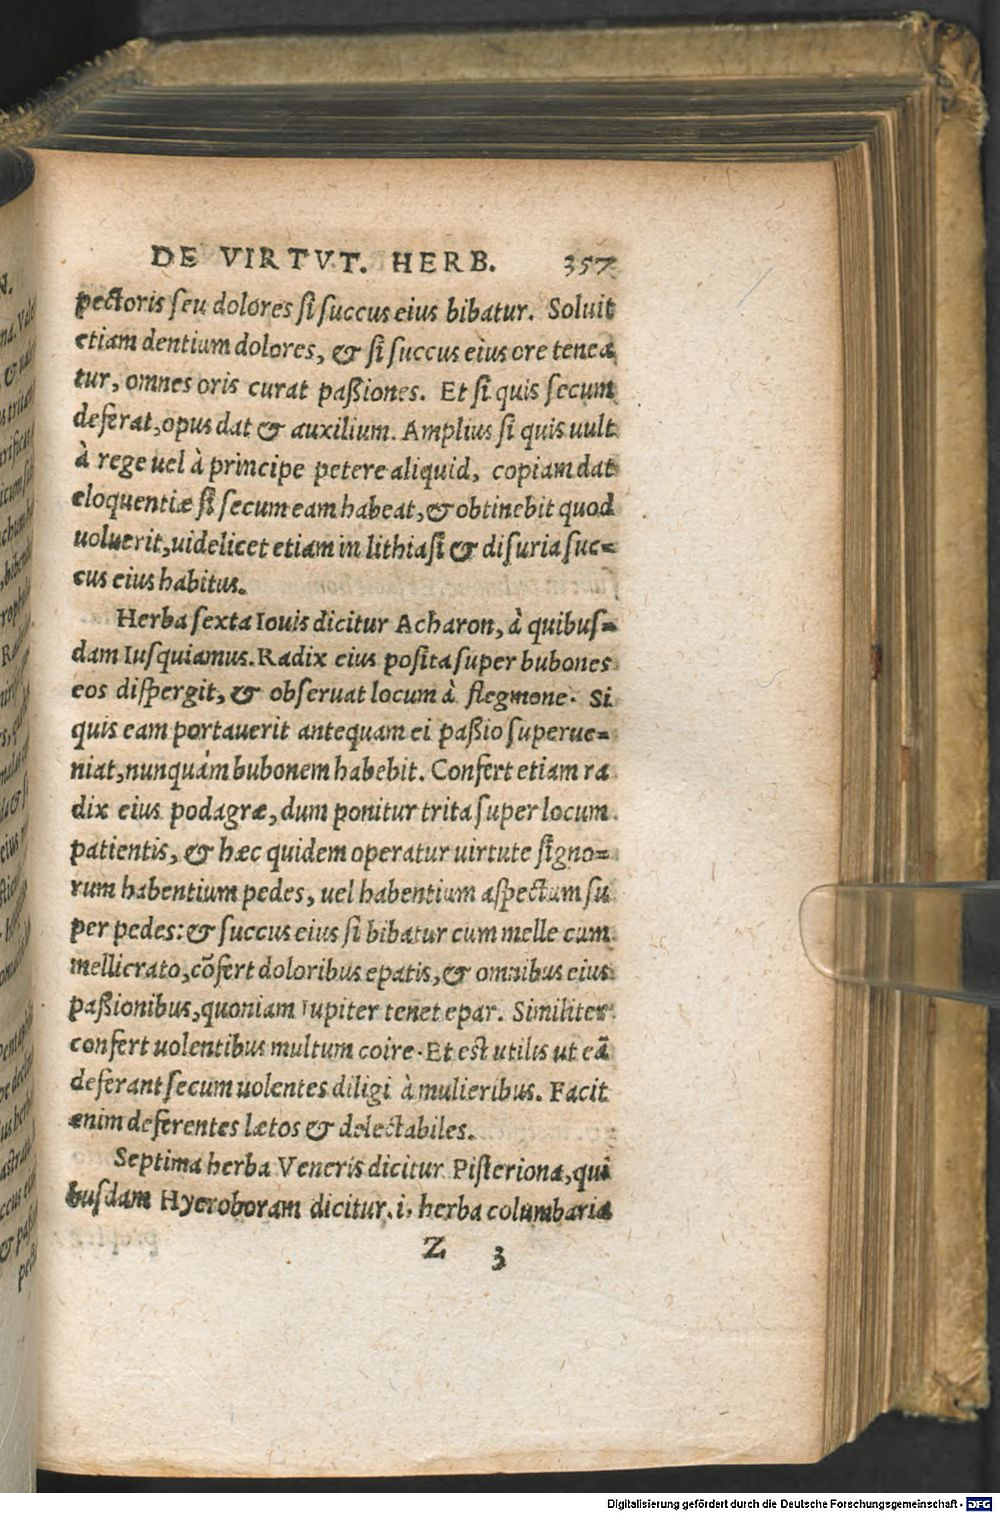 DE VIRTVT. HERB. 357
pectoris seu dolores si succus eius bibatur. Soluit
etiam dentium dolores, & si succus eius ore tenea
tur, omnes oris curat paßiones. Et si quis secum
deferat, opus dat & auxilium. Amplius si quis uult
à rege uel à principe petere aliquid, copiam dat
eloquentiæ si secum eam habeat, & obtinebit quod
uoluerit, uidelicet etiam in lithiasi & disuria suc=
cus eius habitus.
Herba sexta Iouis dicitur Acharon, à quibus=
dam Iusquiamus. Radix eius posita super bubones
eos dispergit, & obseruat locum à flegmone. Si
quis eam portauerit antequam ei paßio superue=
niat, nunquàm bubonem habebit. Confert etiam ra
dix eius podagræ, dum ponitur trita super locum
patientis, & hæc quidem operatur uirtute signo=
rum habentium pedes, uel habentium aspectum su
per pedes: & succus eius si bibatur cum melle cum
mellicrato, cõfert doloribus epatis, & omnibus eius
paßionibus, quoniam Iupiter tenet epar. Similiter
confert uolentibus multum coire. Et est utilis ut eã
deferant secum uolentes diligi à mulieribus. Facit
enim deferentes lætos & delectabiles.
Septima herba Veneris dicitur Pisteriona, qui
busdam Hyeroboram dicitur. i. herba columbaria
Z 3
Digitalisierung gefördert durch die Deutsche Forschungsgemeinschaft - DFG